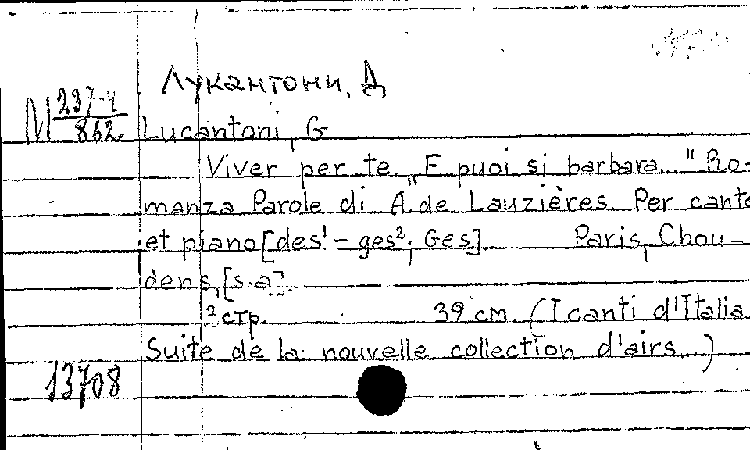 Лукантони, Д
М 237-4
862
Lucantoni, G
Viver per te „E puoi si barbara..." Ro-
manza Parole di A. de Lauzières. Per canto
et piano [des¹ – ges²; Ges]. Paris, Chou-
dens, [s.a].
2 стр. 39 см (I canti d'Italia.
Suite de la nouvelle collection d'airs...)
13708